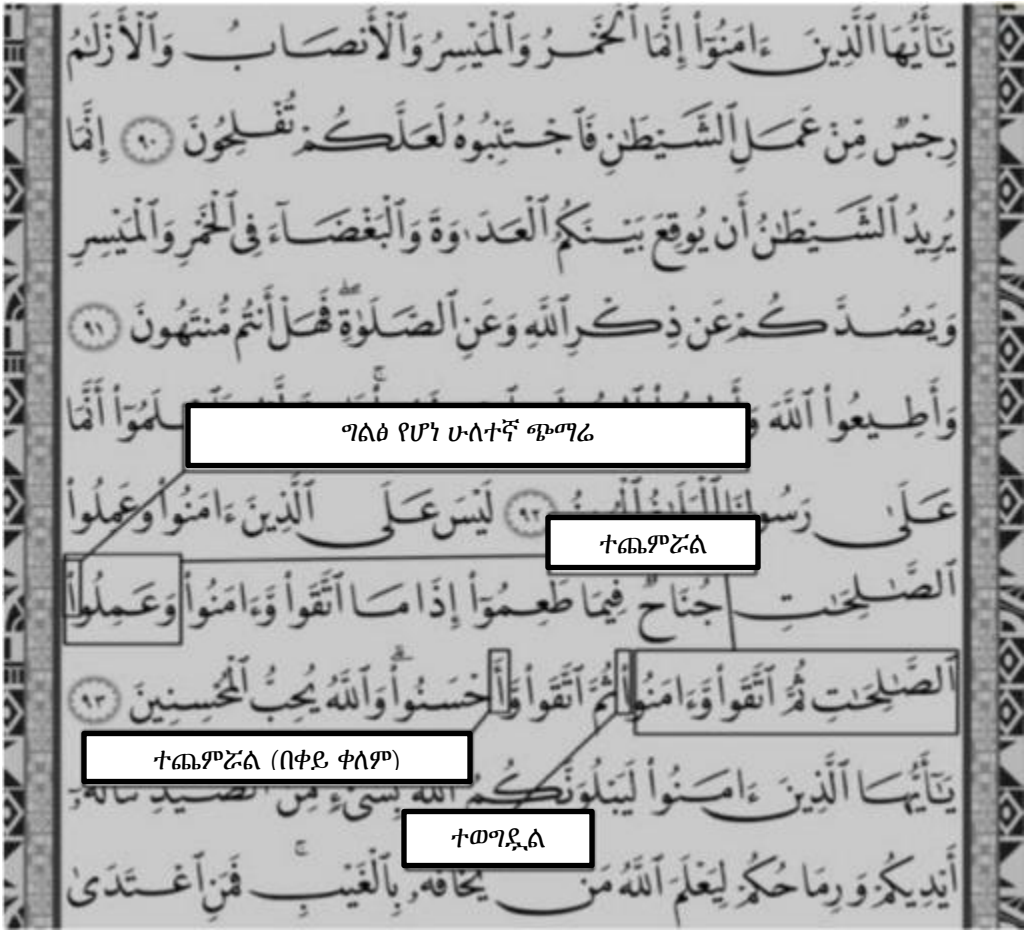 يَـٰٓأَيُّهَا ٱلَّذِينَ ءَامَنُوٓا۟ إِنَّمَا ٱلْخَمْرُ وَٱلْمَيْسِرُ وَٱلْأَنصَابُ وَٱلْأَزْلَـٰمُ
رِجْسٌ مِّنْ عَمَلِ ٱلشَّيْطَـٰنِ فَٱجْتَنِبُوهُ لَعَلَّكُمْ تُفْلِحُونَ ٩٠ إِنَّمَا
يُرِيدُ ٱلشَّيْطَـٰنُ أَن يُوقِعَ بَيْنَكُمُ ٱلْعَدَٰوَةَ وَٱلْبَغْضَآءَ فِى ٱلْخَمْرِ وَٱلْمَيْسِرِ
وَيَصُدَّكُمْ عَن ذِكْرِ ٱللَّهِ وَعَنِ ٱلصَّلَوٰةِ ۖ فَهَلْ أَنتُم مُّنتَهُونَ ٩١
وَأَطِيعُوا۟ ٱللَّهَ أَنَّمَا
ግልፅ የሆነ ሁለተኛ ጭማሬ
عَلَىٰ ٩٢ لَيْسَ عَلَى ٱلَّذِينَ ءَامَنُوا۟ وَعَمِلُوا۟
ተጨምሯል
ٱلصَّـٰلِحَـٰتِ جُنَاحٌ فِيمَا طَعِمُوٓا۟ إِذَا مَا ٱتَّقَوا۟ وَّءَامَنُوا۟ وَعَمِلُوا۟
ٱلصَّـٰلِحَـٰتِ ثُمَّ ٱتَّقَوا۟ وَّءَامَنُوا۟ ثُمَّ ٱتَّقَوا۟ وَّأَحْسَنُوا۟ ۗ وَٱللَّهُ يُحِبُّ ٱلْمُحْسِنِينَ ٩٣
ተጨምሯል (በቀይ ቀለም)
يَـٰٓأَيُّهَا ٱلَّذِينَ ءَامَنُوا۟ لَيَبْلُوَنَّكُمُ ٱللَّهُ بِشَىْءٍ مِّنَ ٱلصَّيْدِ تَنَالُهُۥٓ
ተወግዷል
أَيْدِيكُمْ وَرِمَاحُكُمْ لِيَعْلَمَ ٱللَّهُ مَن يَخَافُهُۥ بِٱلْغَيْبِ ۚ فَمَنِ ٱعْتَدَىٰ